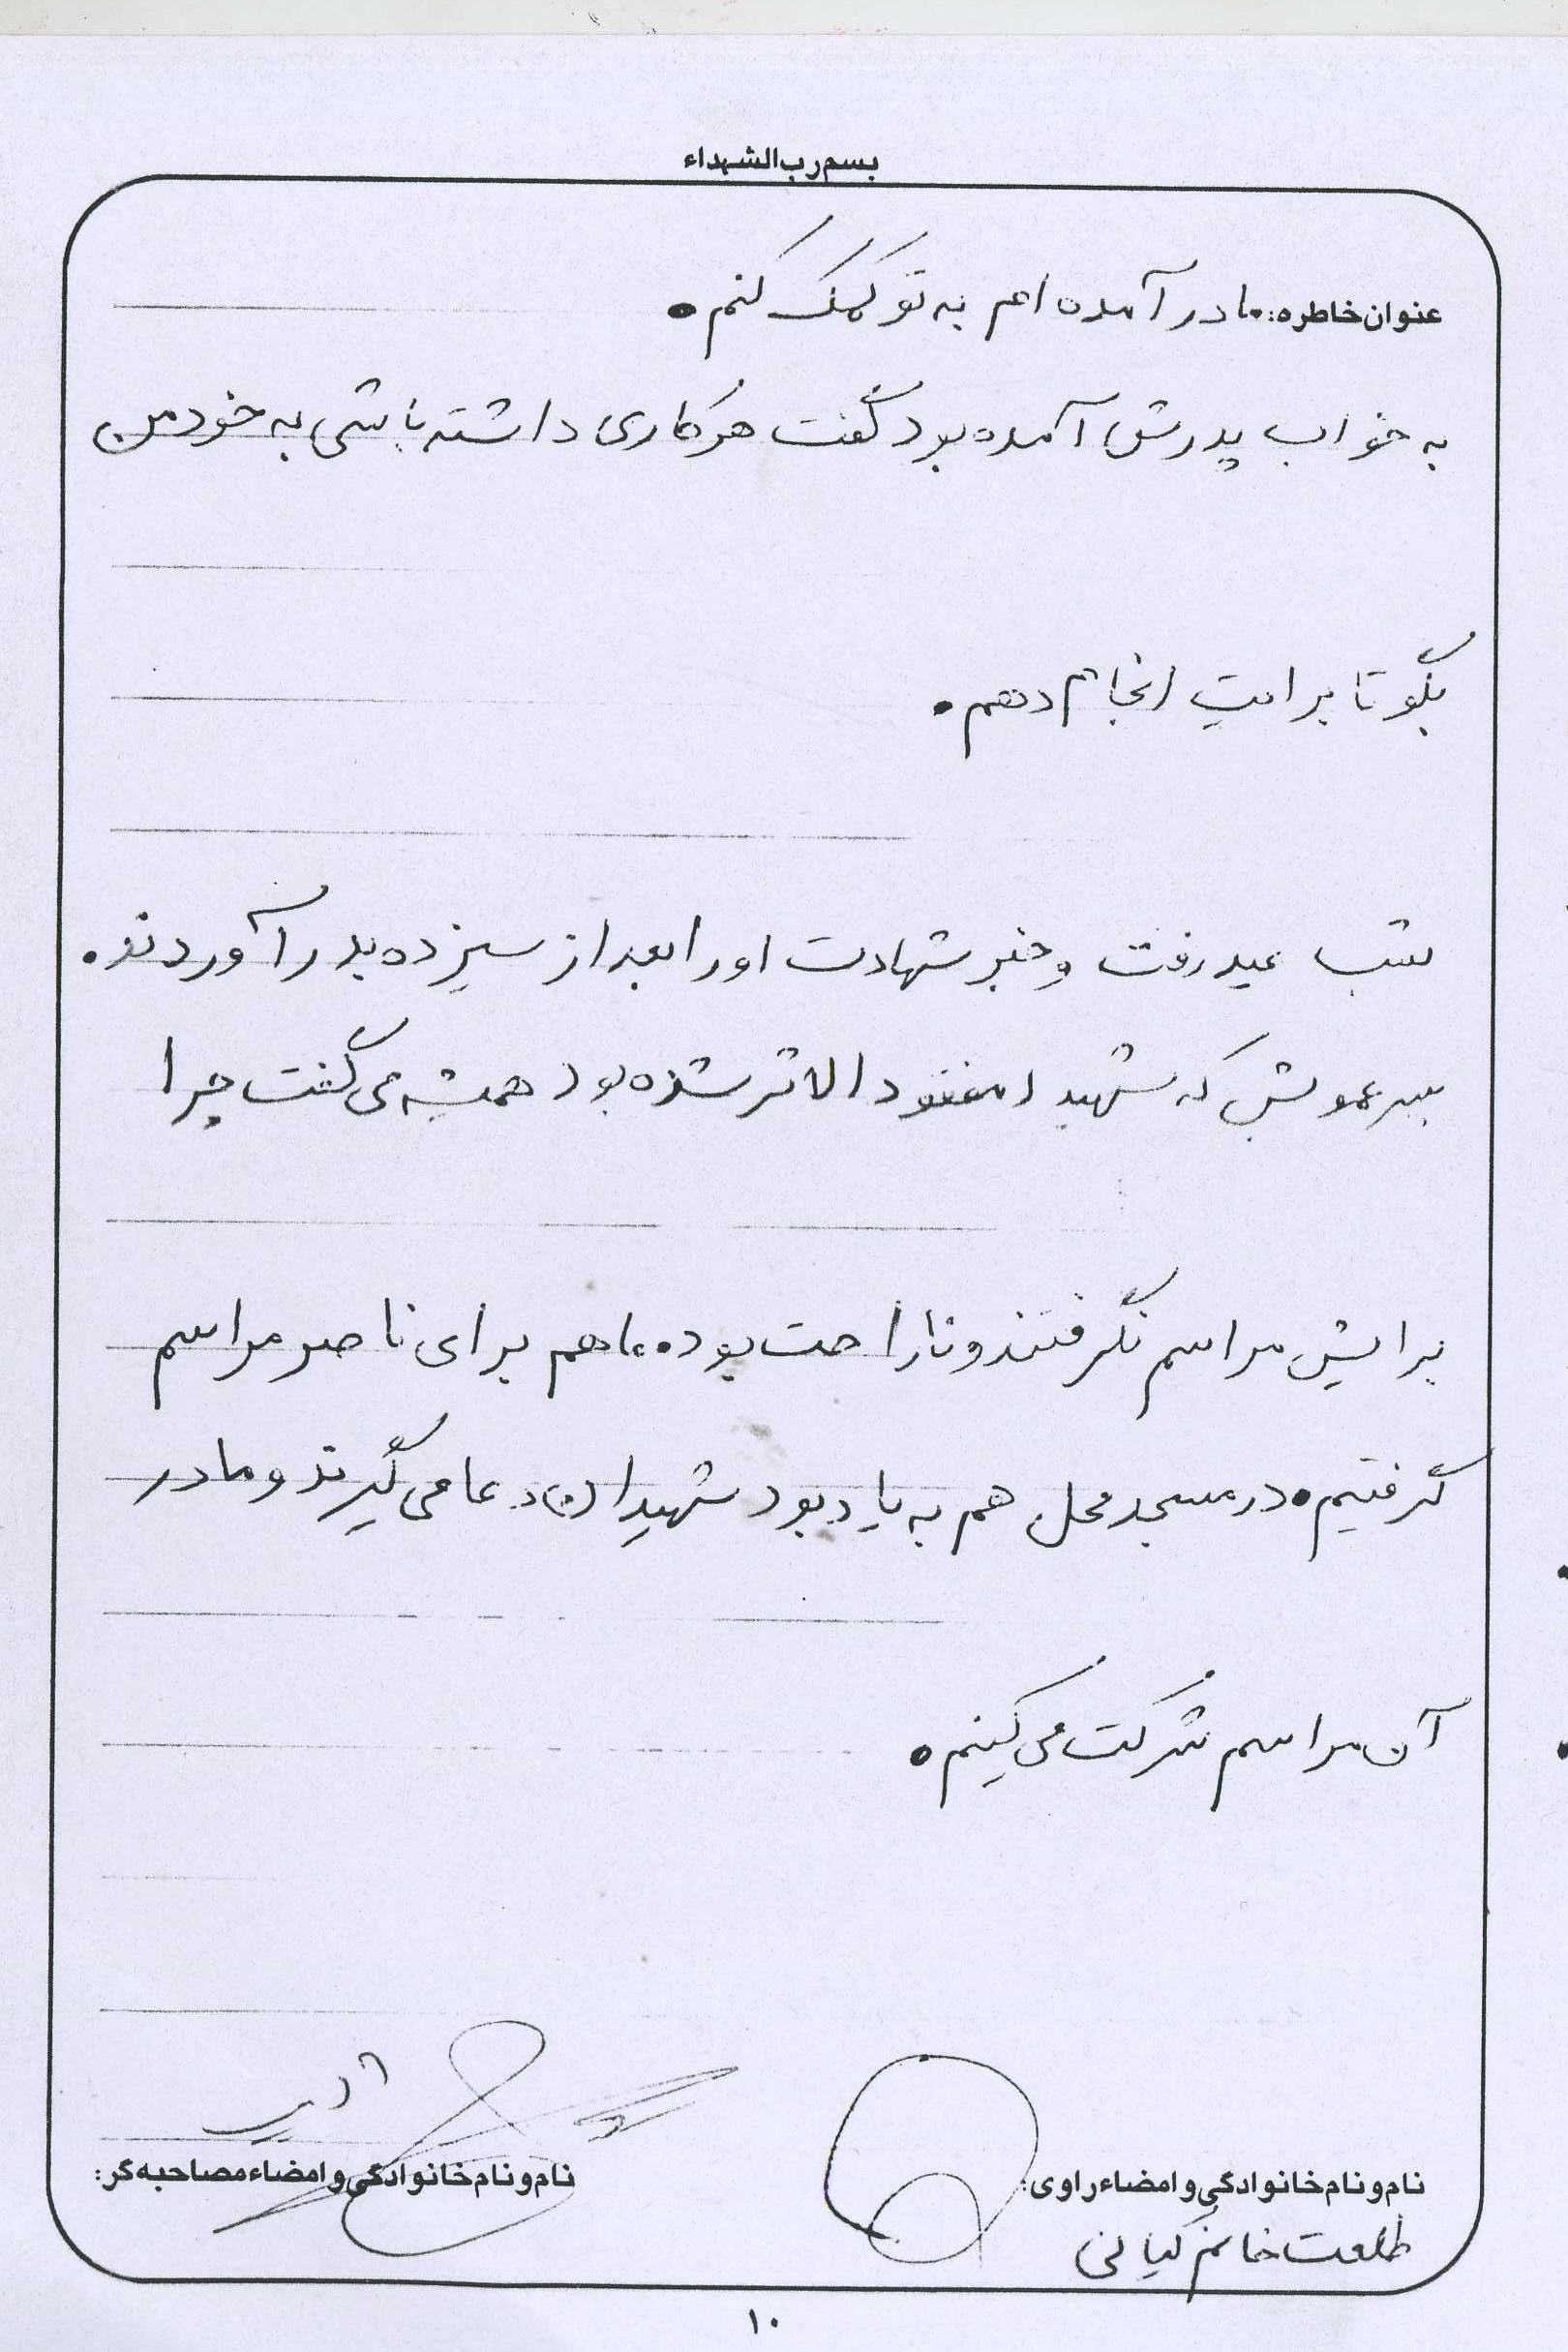 بسم رب الشهداء
عنوان خاطره: مادر آمده ام به تو کمک کنم.
به خواب پدرش آمده بود گفت هر کاری داشته باشی به خود من
بگو تا برایت انجام دهم.
شب عید رفت و خبر شهادت او را بعد از سیزده بدر آوردند.
پسر عمویش که شهید مفقود الاثر شده بود همیشه می گفت چرا
برایش مراسم نگرفتند و ناراحت بود. ما هم برای ناصر مراسم
گرفتیم. در مسجد محل هم به یاد بود شهیدان دعا می گیرند و ما در
آن مراسم شرکت می کنیم.
نام و نام خانوادگی و امضاء راوی:
نام و نام خانوادگی و امضاء مصاحبه گر:
طلعت خانم کیانی
۱۰